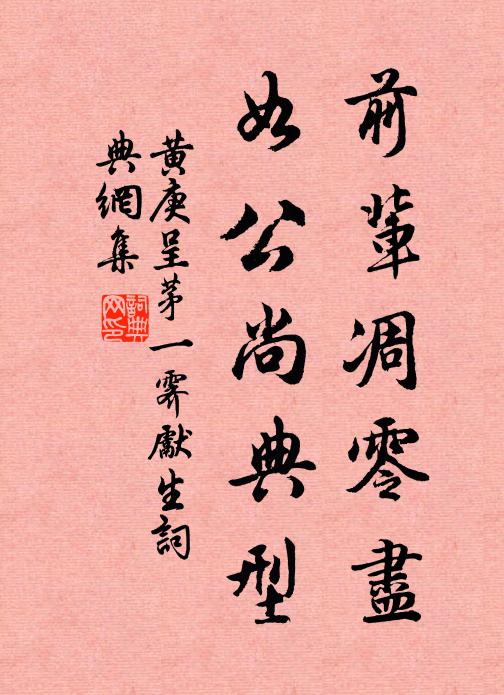 前輩凋零盡
如公尚典型
黃庚呈茅一霽獻生詞
典網集
詞典
网印